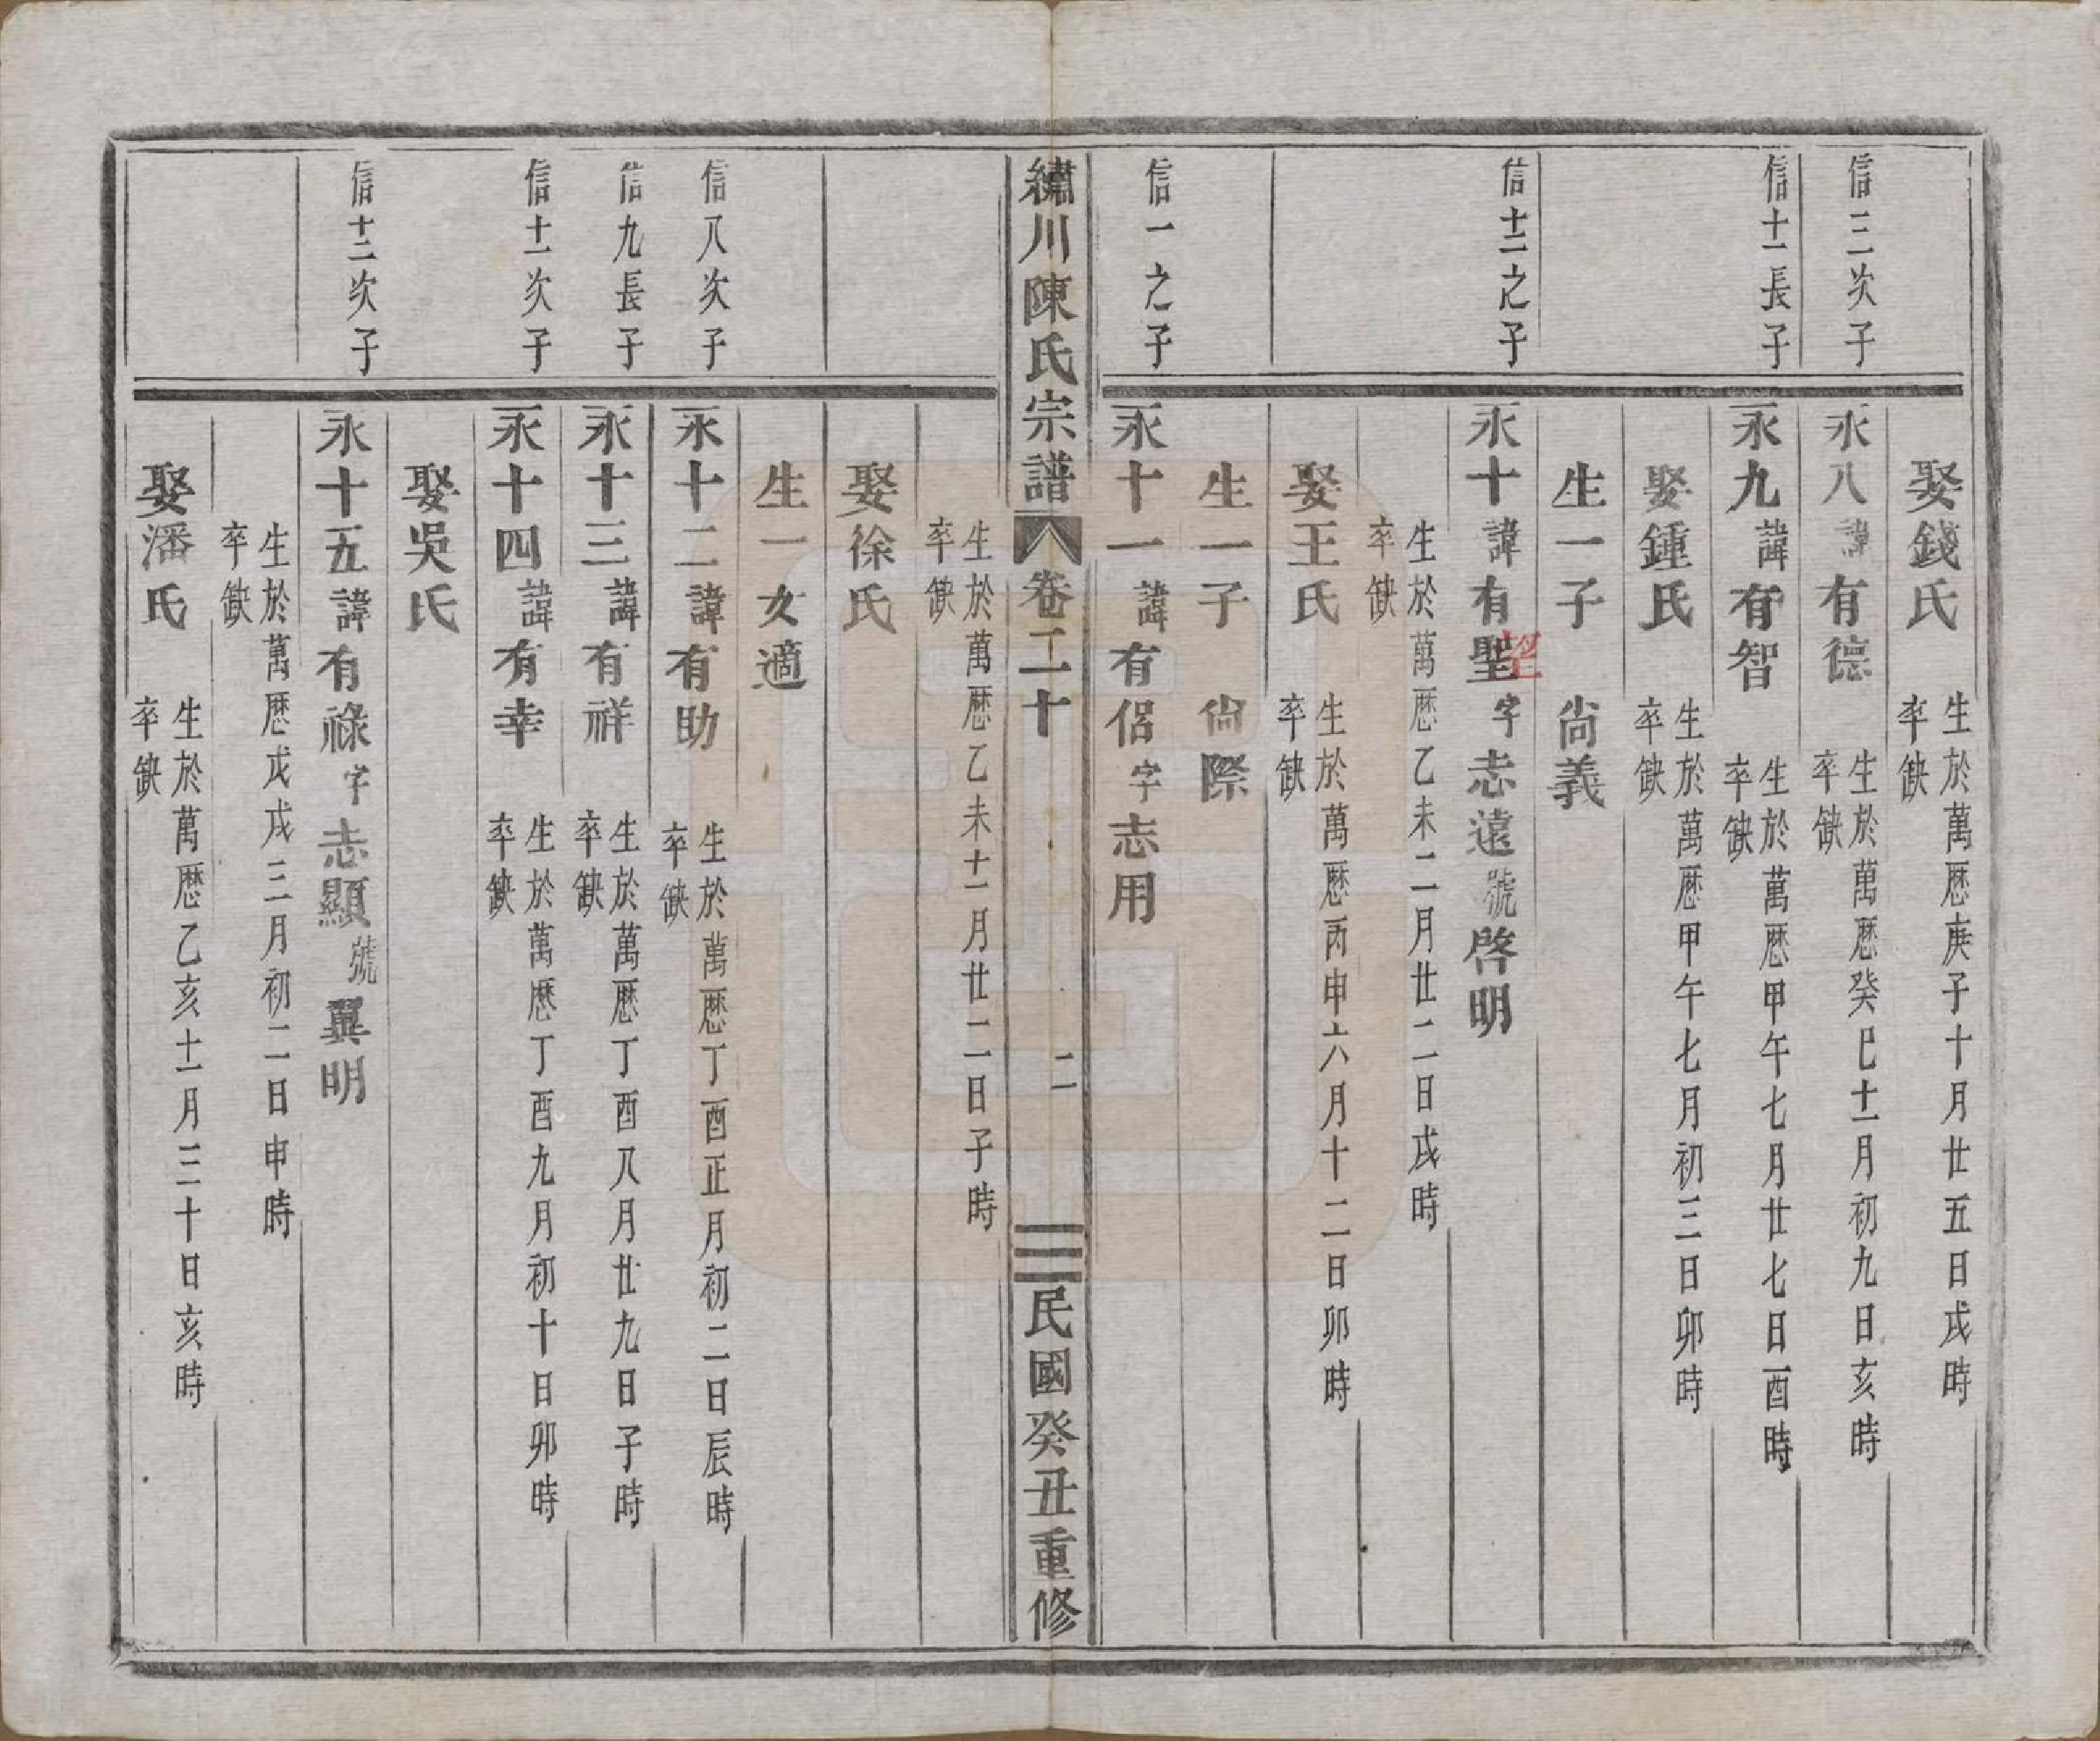 娶錢氏 生於萬厯庚子十月廿五日戌時 卒缺
信三次子
永八諱有德 生於萬厯癸巳十一月初九日亥時 卒缺
信十一長子
永九諱有智 生於萬厯甲午七月廿七日酉時 卒缺
娶鍾氏 生於萬厯甲午七月初三日卯時 卒缺
生一子 尙義
信十二之子
永十諱有聖字志遠號啓明
望
生於萬厯乙未二月廿二日戌時 卒缺
娶王氏 生於萬厯丙申六月十二日卯時 卒缺
生一子 尙際
信一之子
永十一諱有侶字志用
繡川陳氏宗譜 卷二十 二 民國癸丑重修
生於萬厯乙未十一月廿二日子時 卒缺
娶徐氏
生一女適
信八次子
永十二諱有助 生於萬厯丁酉正月初二日辰時 卒缺
信九長子
永十三諱有祥 生於萬厯丁酉八月廿九日子時 卒缺
信十一次子
永十四諱有幸 生於萬厯丁酉九月初十日卯時 卒缺
娶吳氏
信十二次子
永十五諱有祿字志顯號翼明
生於萬厯戊戌三月初二日申時 卒缺
娶潘氏 生於萬厯乙亥十一月三十日亥時 卒缺